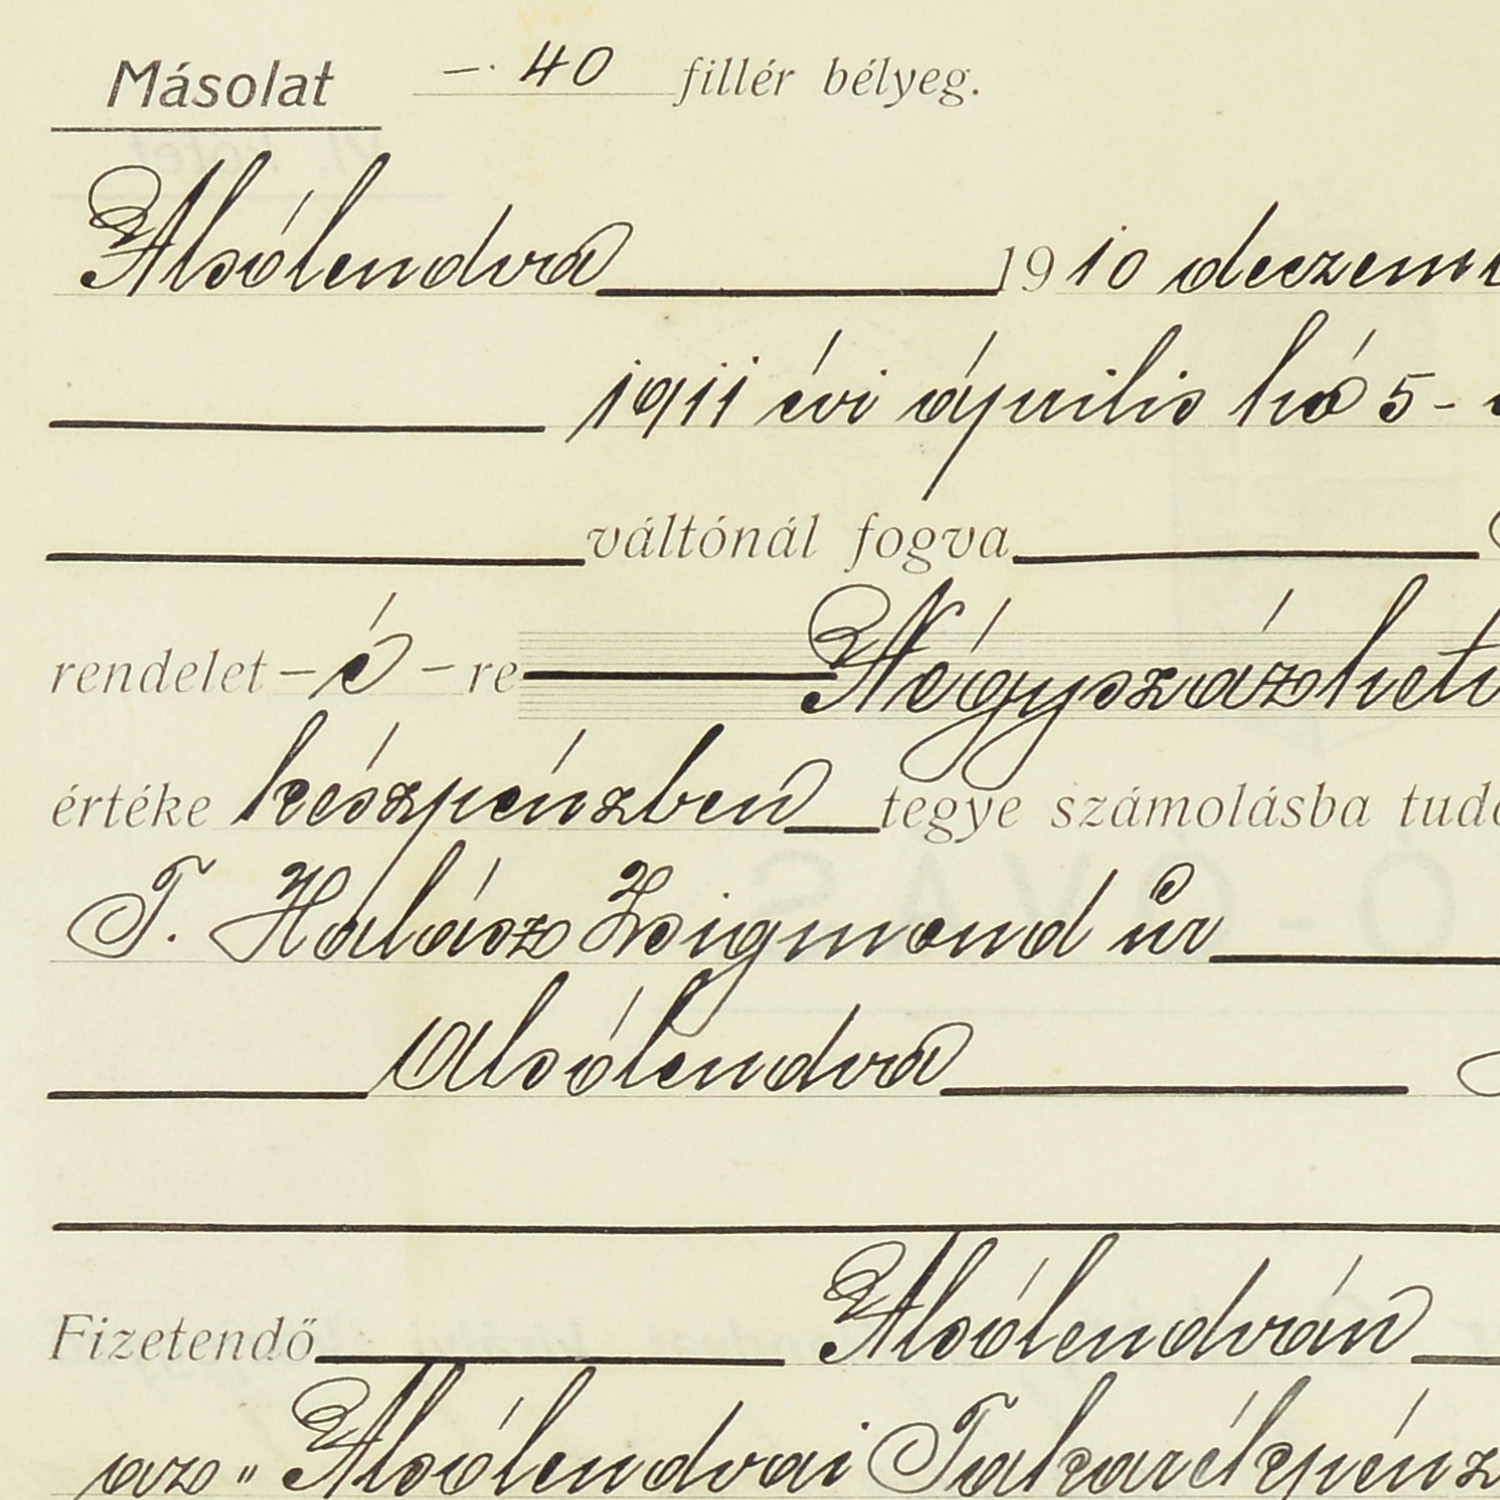 Másolat –· 40 fillér bélyeg.
Alsólendva 1910 deczem
1911 évi április hó 5-
váltónál fogva
rendelet – é – re Négyszázhetv
értéke készpénzben tegye számolásba tudó
T. Halász Zsigmond úr
Alsólendva
Fizetendő Alsólendván
az „Alsólendvai Takarékpénz